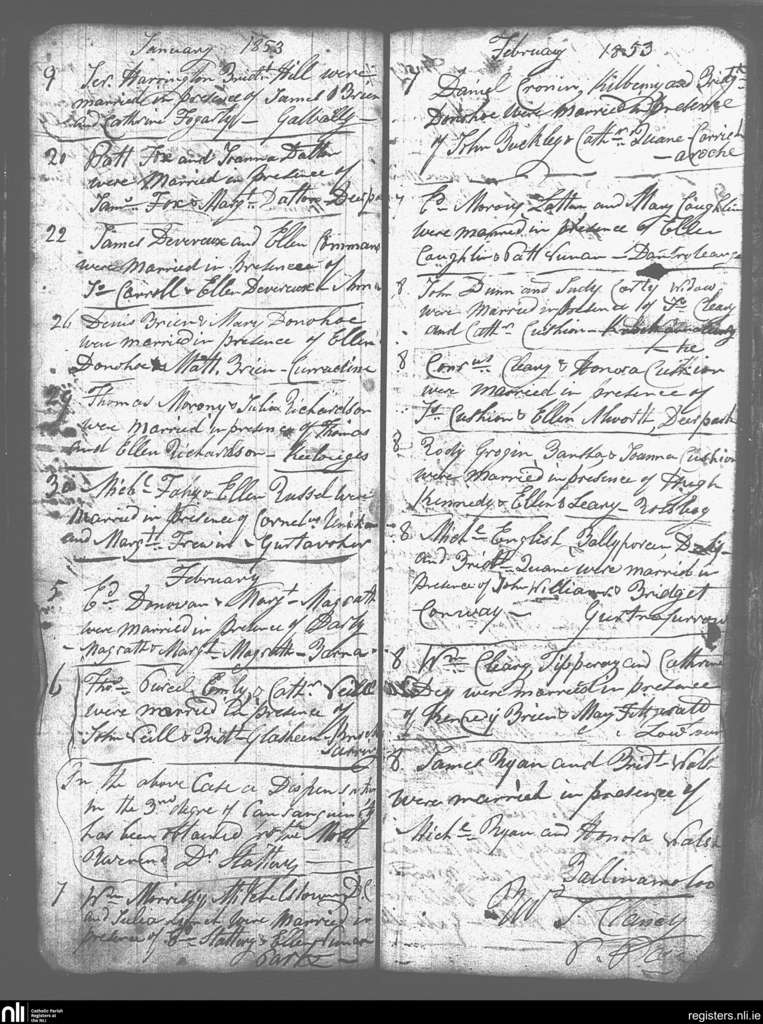 January 1853
9 Jer. Harrington Bridt Hill were
married in presence of James O Brien
and Cathrine Fogarty - Galbally -
20 Patt Fox and Joanna Dalton
were Married in presence of
Jams Fox & Margt Dalton - Deerpa
22 James Devereux and Ellen Commans
were Married in Presence of
Jo Carroll & Ellen Devereux -
26 Denis Brien & Mary Donohoe
were married in presence of Ellen
Donohoe & Matt. Brien - Curracline
29 Thomas Morony & Julia Richardson
were Married in presence of Thomas
and Ellen Richardson -
30 Michl Fahy & Ellen Russel were
Married in Presence of Cornels
and Margt -
February
5 Ed Donovan & Margt Magrath
were married in presence of Darby
Magrath & Margt Magrath - Barna
6 Thos Purcil Emly & Cathr Neill
were married in presence of
John Neill & Bridt Glasheen -
In the above Case a Dispensation
in the 3rd degree of Consanguinity
has been obtained from the Most
Reverend Dr Slattery -
7 Wm Morrissy, Mitchelstown
and Julia Lynch were Married in
presence of Ed Slattery & Ellen
Parks -
February 1853
7 Daniel Cronin, Kilbeny and Bridgt
Donohoe were Married in Presence
of John Buckley & Cathrn Duane -
aroche
7 Ed Morony Lattin and Mary Coughlin
were married in presence of Ellen
Coughlin & Patt -
8 John Dunn and Judy Widow
were Married in presence of Cleary
and Cathr Cushion -
8 Cleary & Honora Cushion
were Married in presence of
Jo Cushion & Ellen Alworth, Deerpark
8 Rody Grogin, Bansha & Joanna Cushion
were Married in presence of Hugh
Kennedy & Ellen O Leary -
8 Michl English, Ballyporeen,
and Bridt Duane were married in
Presence of John Williams & Bridget
Conway -
8 Wm Cleary Tipperary and Cathrine
Day were married in presence
of Brien & Mary Fitzgerald
8 James Ryan and Bridt Walsh
were married in presence of
Michl Ryan and Honora Walsh
Ballinamoloo
T Clancy
nli
Catholic Parish
Registers at
the NLI
registers.nli.ie